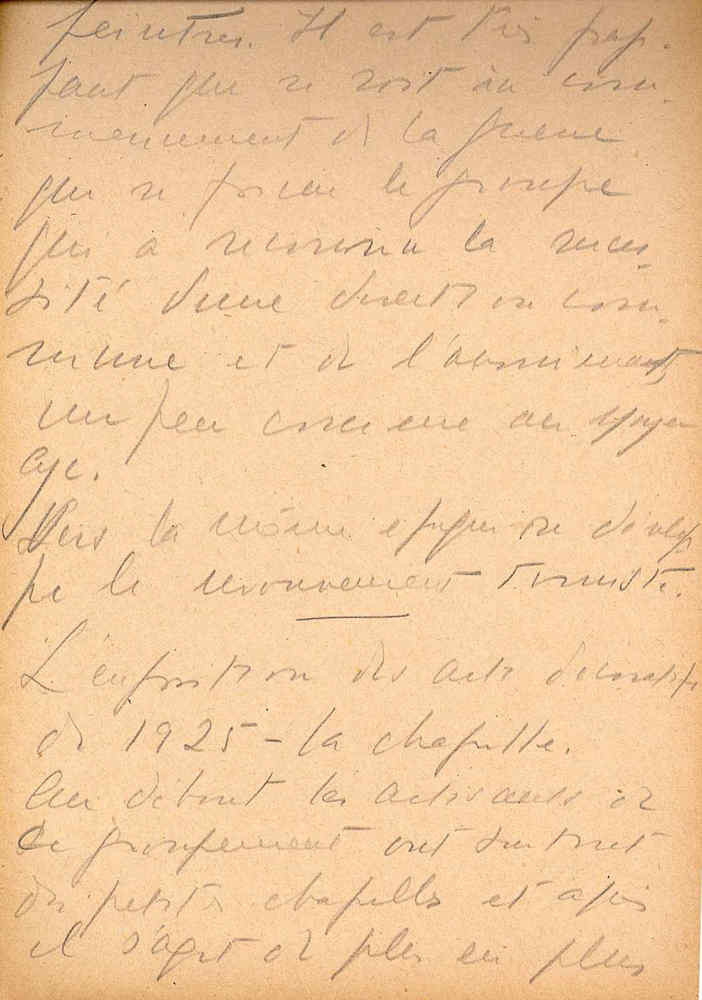 peintres. Il est très frap-
pant que ce soit au com-
mencement de la guerre
que se forme le groupe
qui a reconnu la néces-
sité d'une direction com-
mune et de
un peu comme au moyen
age.
Vers la même époque se dévelop-
pe le mouvement Thomiste.
L'exposition des arts décoratifs
de 1925 – la chapelle.
Au début les artisants de
ce groupement ont surtout
de petites chapelles et après
il s'agit de plus en plus